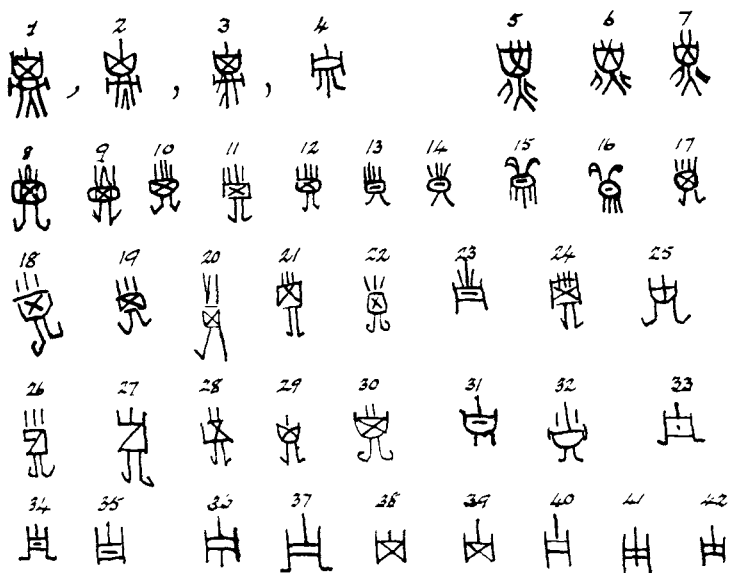 1 , 2 , 3 , 4 5 6 7
8 9 10 11 12 13 14 15 16 17
18 19 20 21 22 23 24 25
26 27 28 29 30 31 32 33
34 35 36 37 38 39 40 41 42